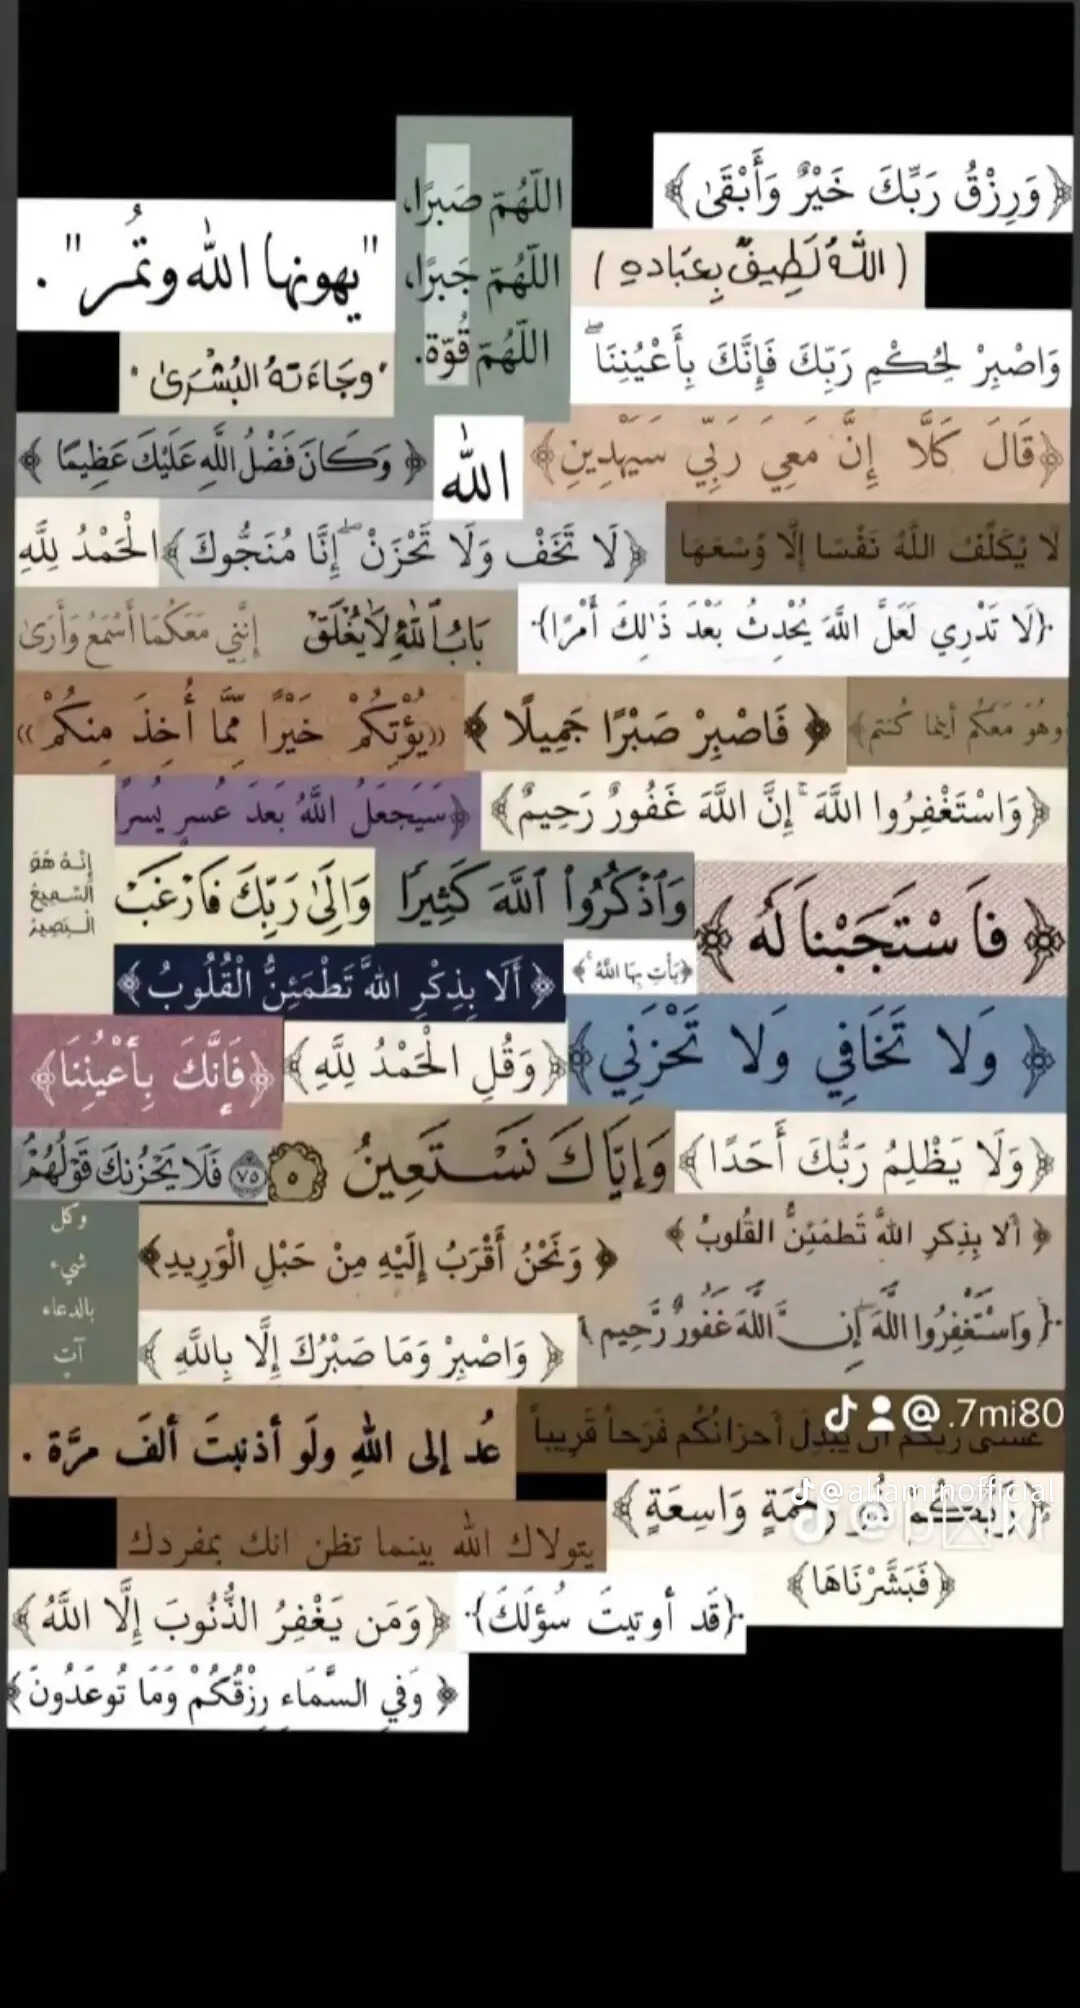 ﴿وَرِزْقُ رَبِّكَ خَيْرٌ وَأَبْقَىٰ﴾
اللّهُمّ صَبرًا،
اللّهُمّ جَبرًا،
اللّهُمّ قُوّة.
"يهونها الله وتمُر" .
(اللّٰهُ لَطِيفٌ بِعِبَادِهِ)
وَاصْبِرْ لِحُكْمِ رَبِّكَ فَإِنَّكَ بِأَعْيُنِنَا ۖ
"وَجَاءَتهُ البُشْرَىٰ"
﴿قَالَ كَلَّا إِنَّ مَعِيَ رَبِّي سَيَهْدِينِ﴾
الله
﴿وَكَانَ فَضْلُ اللَّهِ عَلَيْكَ عَظِيمًا﴾
لَا يُكَلِّفُ اللَّهُ نَفْسًا إِلَّا وُسْعَهَا
﴿لَا تَخَفْ وَلَا تَحْزَنْ ۖ إِنَّا مُنَجُّوكَ﴾
الْحَمْدُ لِلَّهِ
﴿لَا تَدْرِي لَعَلَّ اللَّهَ يُحْدِثُ بَعْدَ ذَٰلِكَ أَمْرًا﴾.
بَابُ ٱللّٰهِ لَا يُغْلَقْ
إِنَّنِي مَعَكُمَا أَسْمَعُ وَأَرَىٰ
وَهُوَ مَعَكُم أينما كُنتم﴾
﴿فَاصْبِرْ صَبْرًا جَمِيلًا﴾
((يُؤْتِكُمْ خَيْرًا مِّمَّا أُخِذَ مِنكُمْ))
﴿وَاسْتَغْفِرُوا اللَّهَ ۚ إِنَّ اللَّهَ غَفُورٌ رَحِيمٌ﴾
﴿سَيَجعَلُ اللَّهُ بَعدَ عُسرٍ يُسرًا
إِنَّهُ هُوَ
السَّمِيعُ
الْبَصِيرُ
﴿فَاسْتَجَبْنا لَهُ﴾
وَٱذْكُرُوا۟ ٱللَّهَ كَثِيرًا
وَإِلَىٰ رَبِّكَ فَارْغَبْ
﴿يَأْتِ بِهَا اللَّهُ ۚ﴾
﴿أَلَا بِذِكْرِ اللَّهِ تَطْمَئِنُّ الْقُلُوبُ﴾
﴿وَلا تَخَافِي وَلا تَحْزَنِي﴾
﴿وَقُلِ الْحَمْدُ لِلَّهِ﴾
﴿فَإِنَّكَ بِأَعْيُنِنَا﴾
﴿وَلَا يَظْلِمُ رَبُّكَ أَحَدًا﴾
وَإِيَّاكَ نَسْتَعِينُ ٥
٧٥ فَلَا يَحْزُنكَ قَوْلُهُمْ
﴿ألا بِذِكرِ اللَّهِ تَطمَئِنُّ القُلوبُ﴾
﴿وَنَحْنُ أَقْرَبُ إِلَيْهِ مِنْ حَبْلِ الْوَرِيدِ﴾
وكل
شيء
بالدعاء
آتٍ
﴿وَاسْتَغْفِرُوا اللَّهَ ۖ إِنَّ اللَّهَ غَفُورٌ رَّحِيم﴾
﴿وَاصْبِرْ وَمَا صَبْرُكَ إِلَّا بِاللَّهِ﴾
@.7mi80
عسى ربكم أن يبدل أحزانُكُم فَرَحاً قَريباً
عُد إلى اللهِ ولَو أذنبتَ ألفَ مرَّة .
@aliaminofficial
﴿رَبُّكُمْ ذُو رَحْمَةٍ وَاسِعَةٍ﴾
يتولاك الله بينما تظن انك بمفردك
﴿فَبَشَّرْنَاهَا﴾
﴿قَد أوتيتَ سُؤلَكَ﴾.
﴿وَمَن يَغْفِرُ الذُّنُوبَ إِلَّا اللَّهُ﴾
﴿وَفِي السَّمَاءِ رِزْقُكُمْ وَمَا تُوعَدُونَ﴾